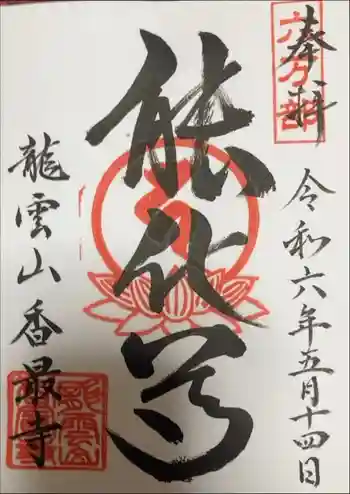 奉拝
六万部
令和六年五月十四日
能化尊
龍雲山香最寺